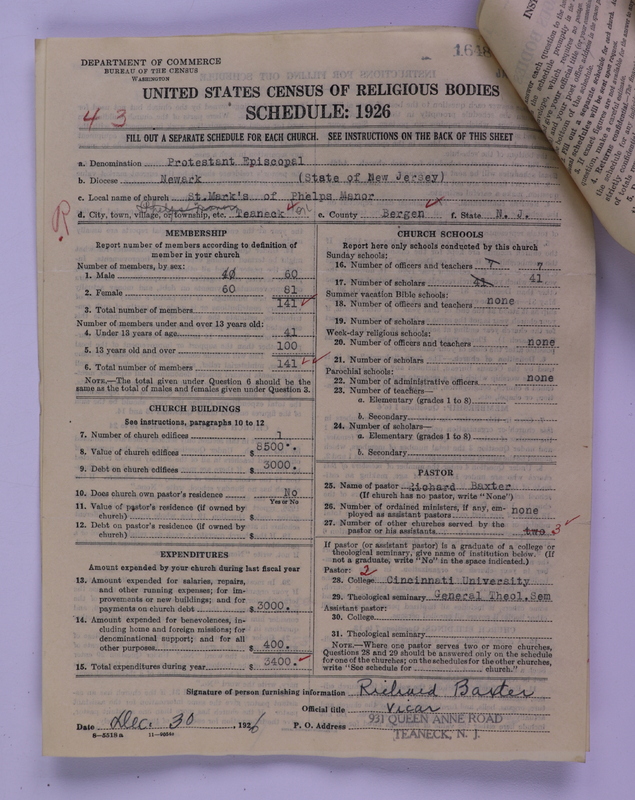 DEPARTMENT OF COMMERCE
BUREAU OF THE CENSUS
WASHINGTON
1648
UNITED STATES CENSUS OF RELIGIOUS BODIES
SCHEDULE: 1926
4 3
FILL OUT A SEPARATE SCHEDULE FOR EACH CHURCH. SEE INSTRUCTIONS ON THE BACK OF THIS SHEET
a. Denomination Protestant Episcopal
b. Diocese Newark (State of New Jersey)
c. Local name of church St.Mark's of Phelps Manor
d. City, town, village, or township, etc. Teaneck e. County Bergen f. State N. J.
R
MEMBERSHIP
Report number of members according to definition of
member in your church
Number of members, by sex:
1. Male 40 60
2. Female 60 81
3. Total number of members 141
Number of members under and over 13 years old:
4. Under 13 years of age 41
5. 13 years old and over 100
6. Total number of members 141
NOTE.—The total given under Question 6 should be the
same as the total of males and females given under Question 3.
CHURCH BUILDINGS
See instructions, paragraphs 10 to 12
7. Number of church edifices 1
8. Value of church edifices $ 8500.
9. Debt on church edifices $ 3000.
10. Does church own pastor's residence No
Yes or No
11. Value of pastor's residence (if owned by
church) $
12. Debt on pastor's residence (if owned by
church) $
EXPENDITURES
Amount expended by your church during last fiscal year
13. Amount expended for salaries, repairs,
and other running expenses; for im-
provements or new buildings; and for
payments on church debt $ 3000.
14. Amount expended for benevolences, in-
cluding home and foreign missions; for
denominational support; and for all
other purposes $ 400.
15. Total expenditures during year $ 3400.
CHURCH SCHOOLS
Report here only schools conducted by this church
Sunday schools:
16. Number of officers and teachers 7 7
17. Number of scholars 41 41
Summer vacation Bible schools:
18. Number of officers and teachers none
19. Number of scholars
Week-day religious schools:
20. Number of officers and teachers none
21. Number of scholars
Parochial schools:
22. Number of administrative officers none
23. Number of teachers—
a. Elementary (grades 1 to 8)
b. Secondary
24. Number of scholars—
a. Elementary (grades 1 to 8)
b. Secondary
PASTOR
25. Name of pastor Richard Baxter
(If church has no pastor, write "None")
26. Number of ordained ministers, if any, em-
ployed as assistant pastors none
27. Number of other churches served by the
pastor or his assistants two 3
If pastor (or assistant pastor) is a graduate of a college or
theological seminary, give name of institution below. (If
not a graduate, write "No" in the space indicated.)
Pastor: 2
28. College Cincinnati University
29. Theological seminary General Theol.Sem
Assistant pastor:
30. College
31. Theological seminary
NOTE.—Where one pastor serves two or more churches,
Questions 28 and 29 should be answered only on the schedule
for one of the churches; on the schedules for the other churches,
write "See schedule for church."
Signature of person furnishing information Richard Baxter
Official title Vicar
Date Dec. 30, 1926 P. O. Address 931 QUEEN ANNE ROAD
TEANECK, N. J.
8—5518a 11—9034